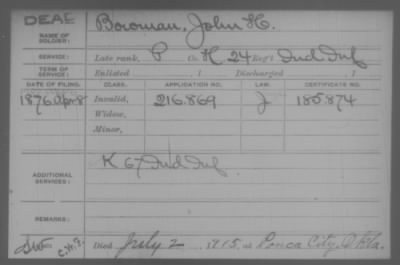 DEAF
NAME OF SOLDIER: Bowman, John H.
SERVICE: Late rank, P Co. H, 24 Reg't Ind Inf
TERM OF SERVICE: Enlisted , 1 Discharged , 1
DATE OF FILING. CLASS. APPLICATION NO. LAW. CERTIFICATE NO.
1876 Apr 8 Invalid, 216.869 J 185.874
Widow,
Minor,
ADDITIONAL SERVICES: K 67 Ind Inf
REMARKS:
C.W.
Died July 2, 1915, at Ponca City, Okla.